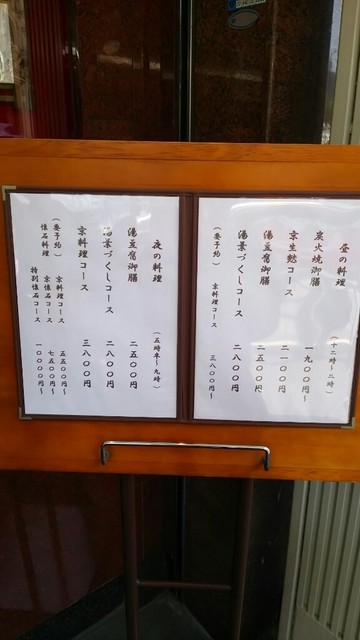 昼の料理 (十二時〜二時)
炭火焼御膳 一九〇〇円〜
京生麩コース 二一〇〇円
湯豆腐御膳 二五〇〇円
湯葉づくしコース 二八〇〇円
(要予約) 京料理コース 三八〇〇円〜
夜の料理 (五時半〜九時)
湯豆腐御膳 二五〇〇円
湯葉づくしコース 二八〇〇円
京料理コース 三八〇〇円
(要予約) 京料理コース 五五〇〇円〜
懐石料理 京懐石コース 七五〇〇円〜
特別懐石コース 一〇〇〇〇円〜